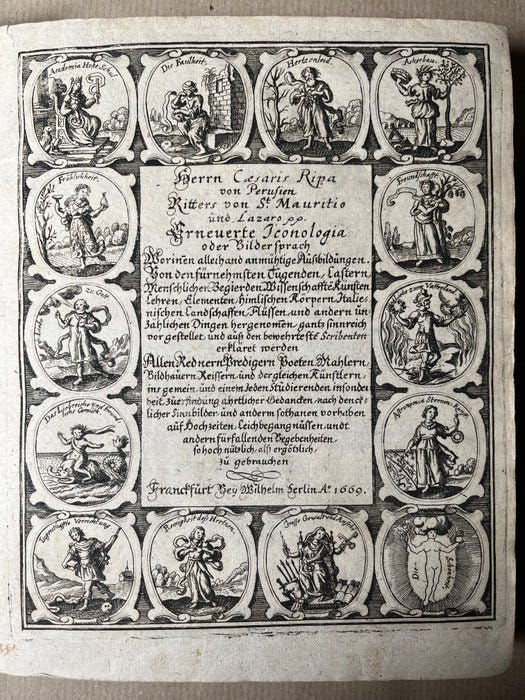 Academia Hohe Schul
Die Faulheit.
Hertzenleid.
Ackerbau.
Frölichkeit.
Freundschafft.
Liebe zu Gott
Liebe zum Vatterland
Das
Gemüth.
Astronomia Sternen-Kunst
Herrn Cæsaris Ripa
von Perusien
Ritters von St. Mauritio
und Lazaro pp.
Erneuerte Iconologia
oder Bildersprach
Worinen allerhand anmühtige Außbildungen.
Von den fürnehmsten Tugenden, Lastern
Menschlichen Begierden Wissenschafften Künsten
Lehren, Elementen, himlischen Körpern, Italie-
nischen Landschafften, Flüssen, und andern un-
zahlichen Dingen hergenomen, gantz sinnreich
vorgestellet und auß den bewehrteste Scribenten
erkläret werden
Allen Rednern Predigern Poeten Mahlern
Bildhauern Reissern und dergleichen Künstlern,
ins gemein, und einem Jeden Studierenden insonder-
heit, zu erfindung
licher Sinnbilder und andern sothanen vorhaben
auf Hochzeiten, Leichbegangnüssen, undt
andern fürfallenden Begebenheiten,
so hoch nützlich, als ergötzlich,
zu gebrauchen
Franckfurt Bey Wilhelm Serlin Ao. 1669.
Reinigkeit deß Hertzens.
Die Schönheit.